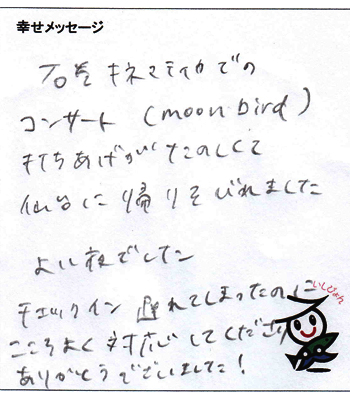 幸せメッセージ
石巻 キネマティカでの
コンサート (moon bird)
打ちあげがたのしくて
仙台に帰りそびれました
よい夜でした
チェックイン 遅れてしまったのに
こころよく対応してくださり
ありがとうございました!
いしぴょん